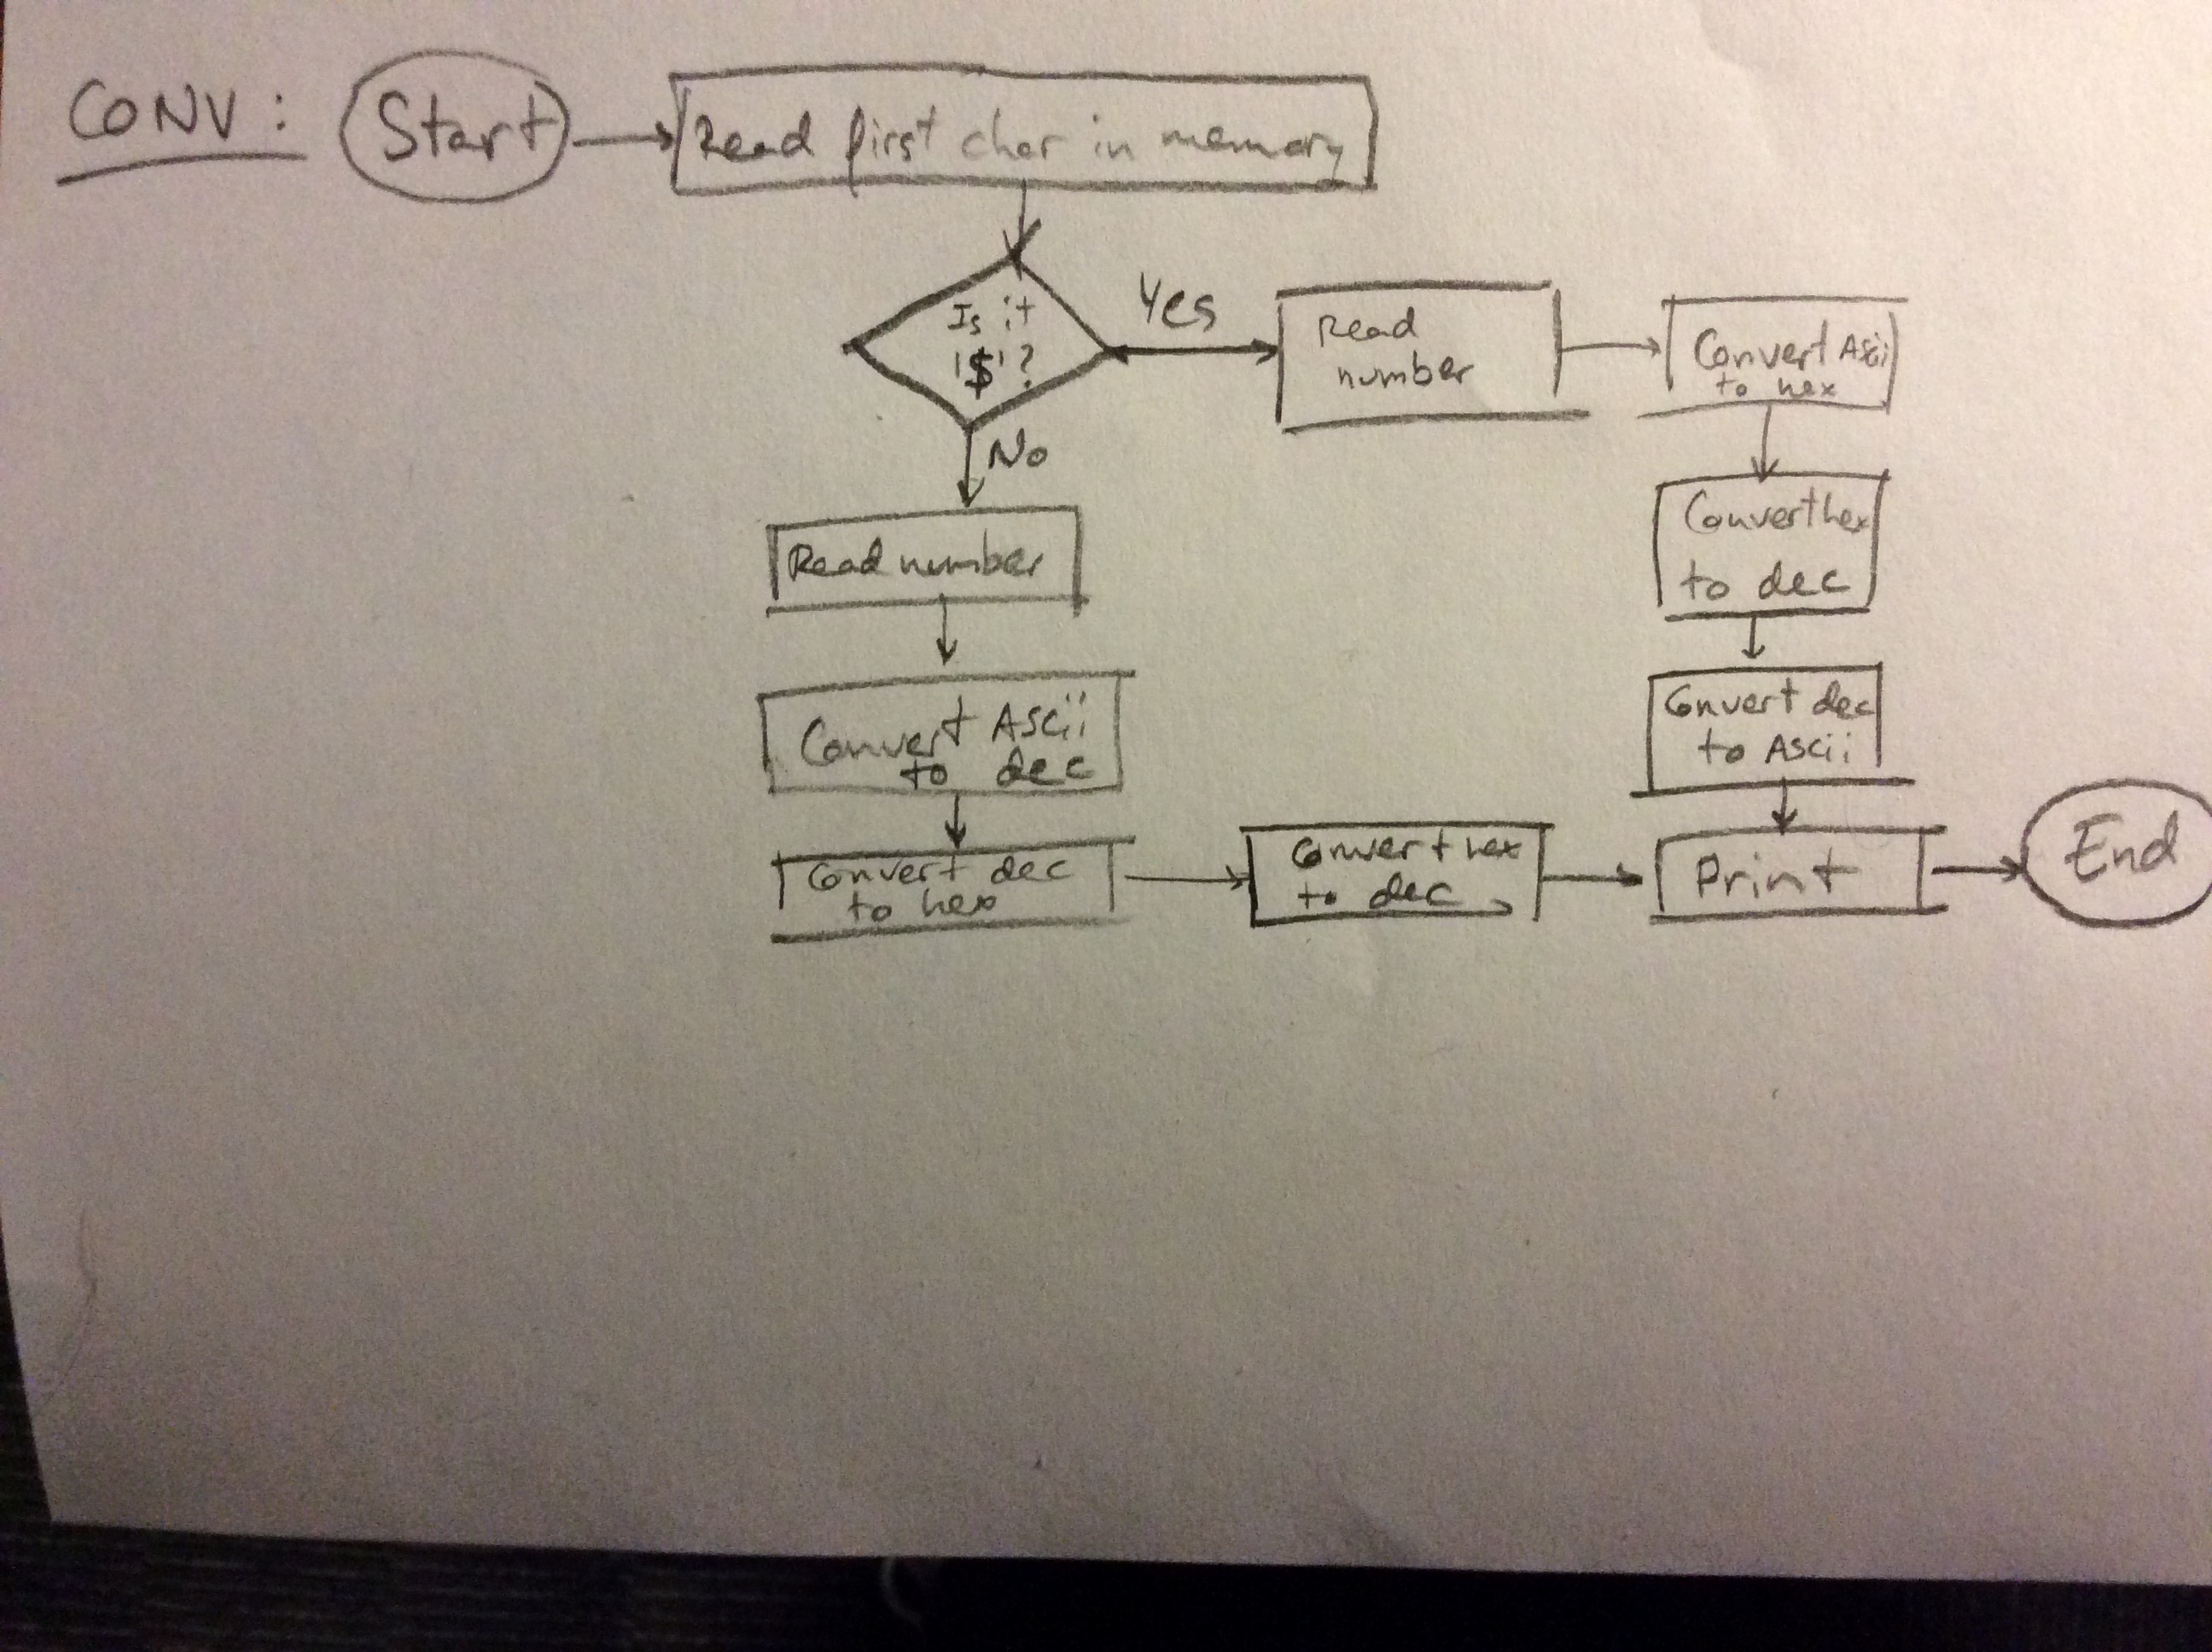 CONV:
Start
Read first char in memory
Is it
'$'?
Yes
Read
number
Convert Ascii
to hex
Convert hex
to dec
Convert dec
to Ascii
No
Read number
Convert Ascii
to dec
Convert dec
to hex
Convert hex
to dec
Print
End